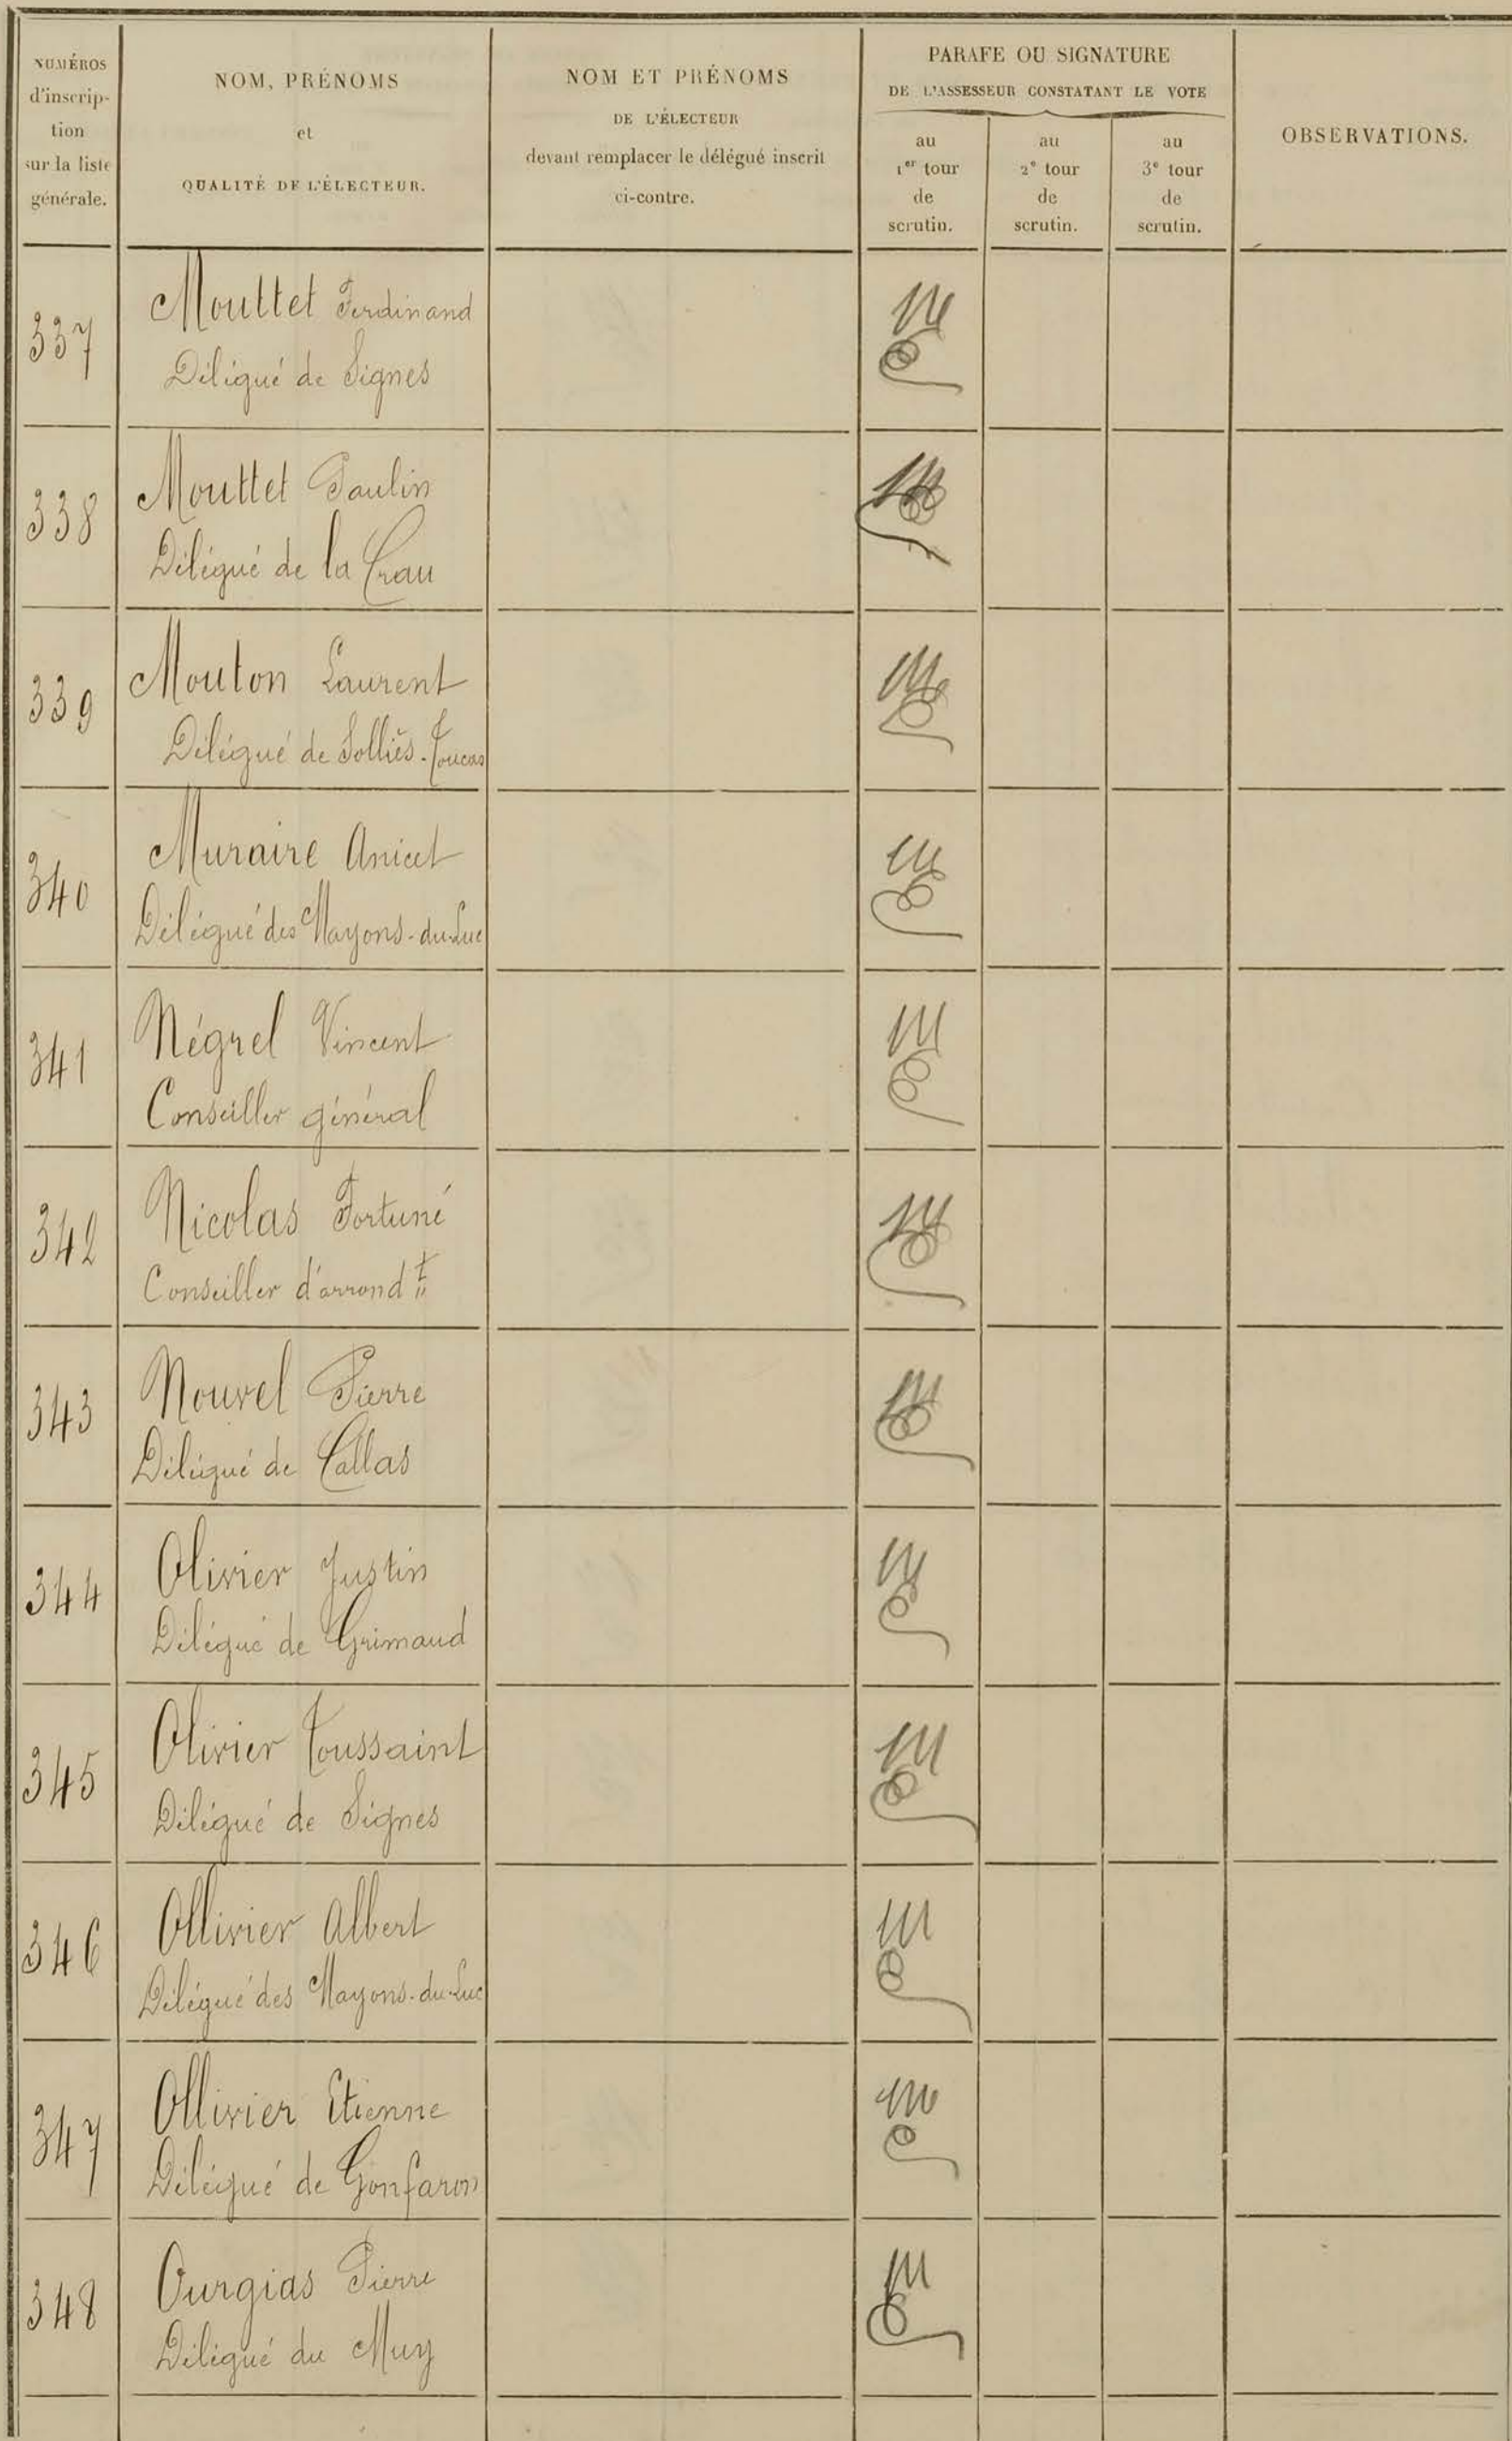 NUMÉROS
d'inscrip-
tion
sur la liste
générale.
NOM, PRÉNOMS
et
QUALITÉ DE L'ÉLECTEUR.
NOM ET PRÉNOMS
DE L'ÉLECTEUR
devant remplacer le délégué inscrit
ci-contre.
PARAFE OU SIGNATURE
DE L'ASSESSEUR CONSTATANT LE VOTE
au
1er tour
de
scrutin.
au
2e tour
de
scrutin.
au
3e tour
de
scrutin.
OBSERVATIONS.
337
Mouttet Ferdinand
Délégué de Signes
338
Mouttet Paulin
Délégué de la Crau
339
Mouton Laurent
Délégué de Solliès-Toucas
340
Muraire Anicet
Délégué des Mayons-du-Luc
341
Négrel Vincent
Conseiller général
342
Nicolas Fortuné
Conseiller d'arrondt
343
Nouvel Pierre
Délégué de Callas
344
Olivier Justin
Délégué de Grimaud
345
Olivier Toussaint
Délégué de Signes
346
Ollivier Albert
Délégué des Mayons-du-Luc
347
Ollivier Etienne
Délégué de Gonfaron
348
Ourgias Pierre
Délégué du Muy